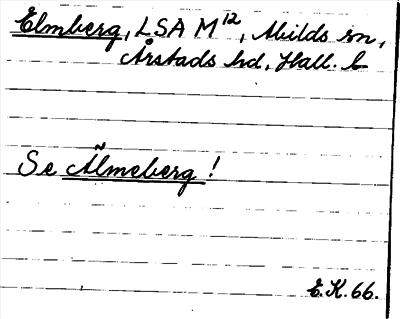 Elmberg, LSA M¹², Abilds sn,
Årstads hd, Hall. l
Se Älmeberg!
E.K. 66.